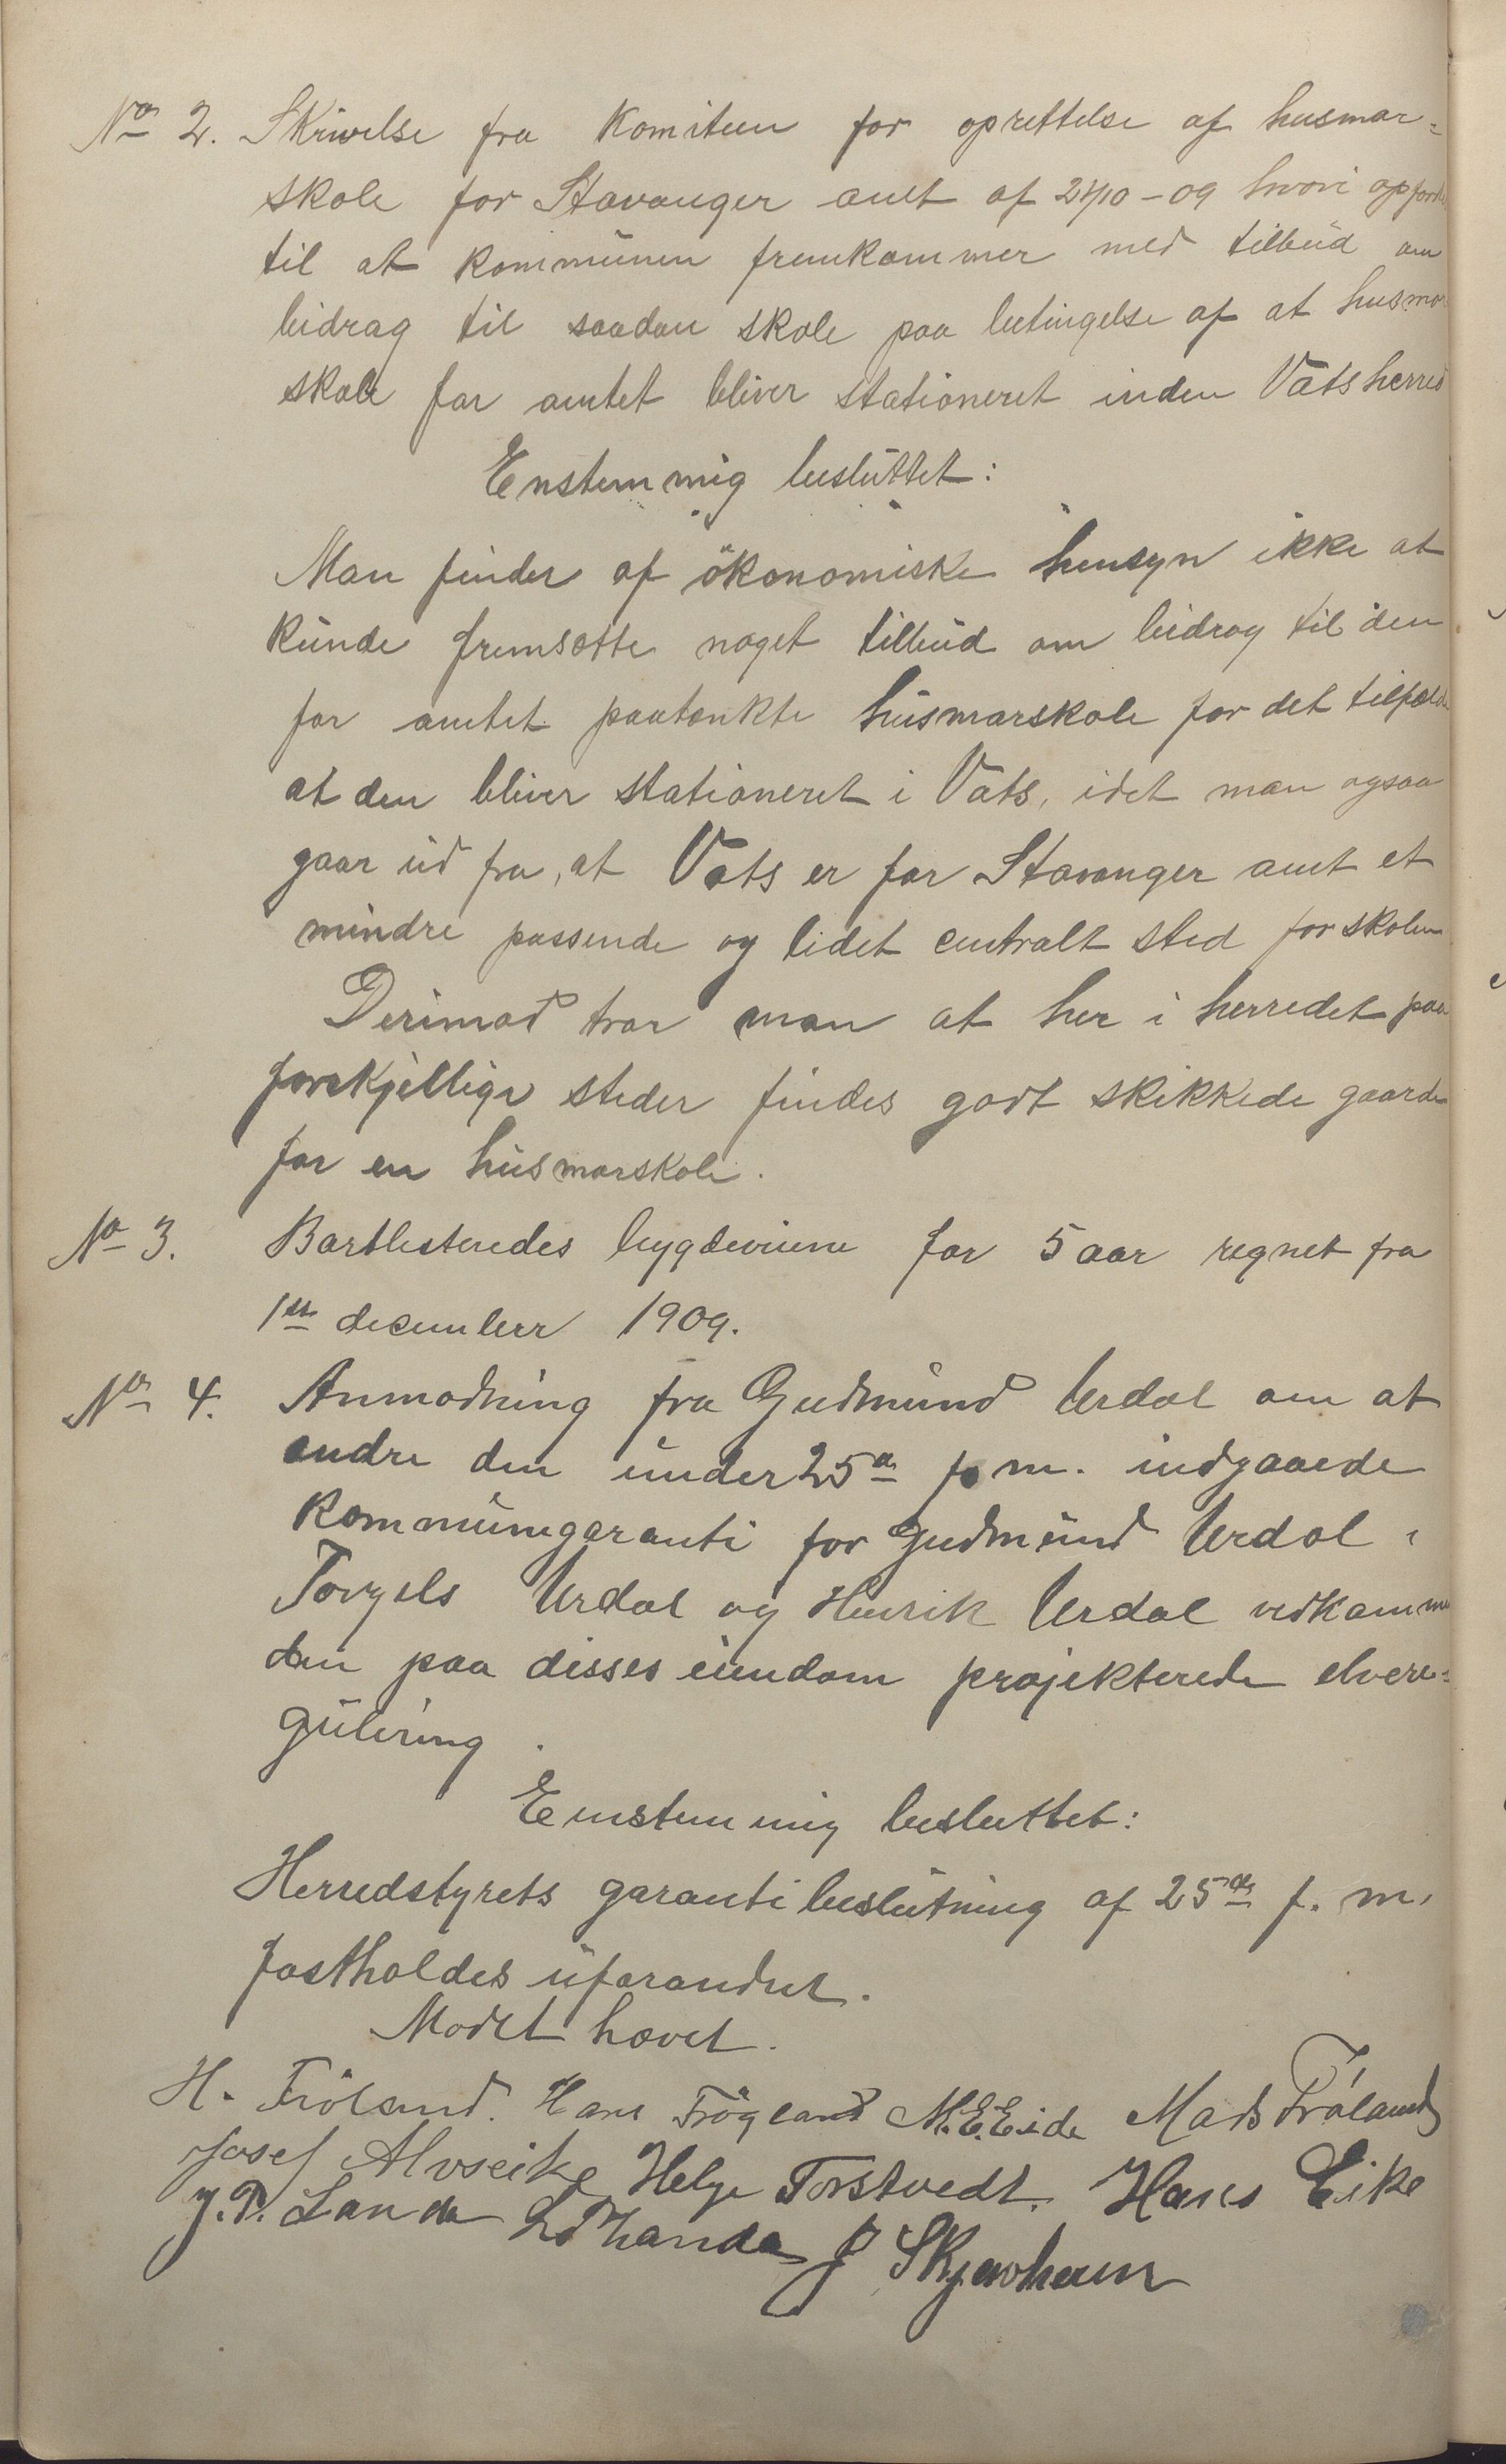 No 2. Skrivelse fra komiteen for oprettelse af husmor-
skole for Stavanger amt af 21/10-09 hvori opfordr
til at kommunen fremkommer med tilbud om
bidrag til saadan skole paa betingelse af at husmor
skole for amtet bliver stationeret inden Vats herred
Enstemmig besluttet:
Man finder af økonomiske hensyn ikke at
kunde fremsætte noget tilbud om bidrag til den
for amtet paatænkte husmorskole for det tilfælde
at den bliver stationeret i Vats, idet man ogsaa
gaar ud fra, at Vats er for Stavanger amt et
mindre passende og lidet centralt sted for skolen
Derimod tror man at her i herredet paa
forskjellige steder findes godt skikkede gaarde
for en husmorskole.
No 3. Bortlisteredes bygdeviene for 5 aar regnet fra
1ste december 1909.
No 4. Anmodning fra Gudmund Urdal om at
ændre den under 25de f. m. indgaaede
kommunegaranti for Gudmund Urdal,
Torgels Urdal og Henrik Urdal vedkommen
den paa disses eiendom projekterede elvere-
gulering.
Enstemmig besluttet:
Herredstyrets garantibeslutning af 25de f. m.
fastholdes uforandret.
Mødet hævet.
H. Frøland. Hans Frøyland M. E. Eide Mads Frøland
Josef Alvseike Helge Torstvedt. Hans Eike
J. P. Landa Landa J Skjervheim